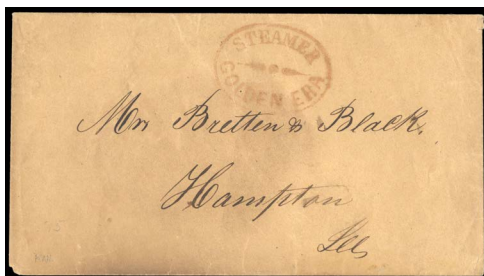 STEAMER
GOLDEN ERA
Mrs Bretten & Black.
Hampton